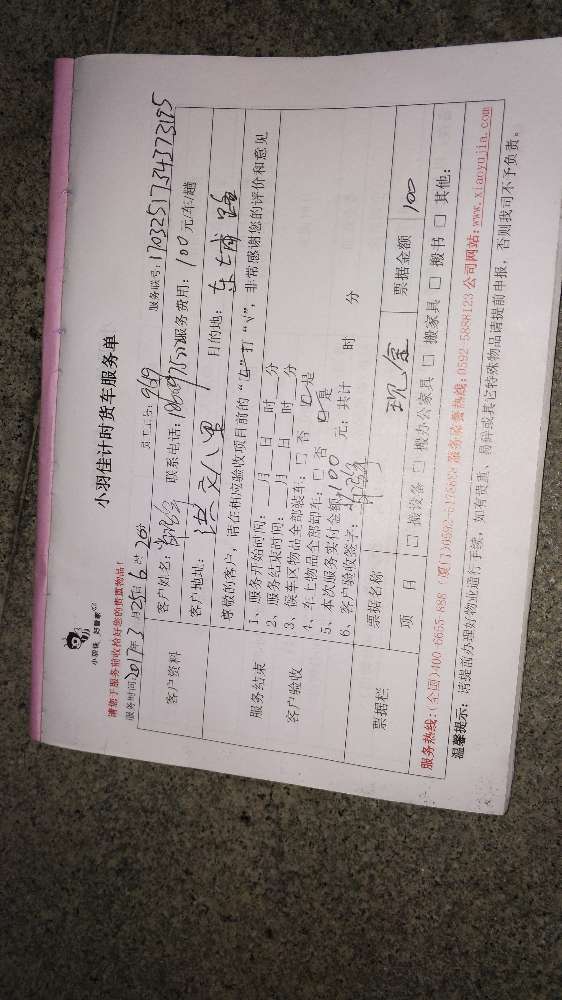 小羽佳 好管家
小羽佳计时货车服务单
请您于服务前收检好您的贵重物品！
服务时间：2017年3月25日6时20分
员工工号：969
服务账号：170325173437 3185
客户资料
客户姓名：
联系电话：
服务费用：100元/车/趟
客户地址：洪文八里
目的地：东埔路
服务结束
客户验收
尊敬的客户，请在相应验收项目前的“□”打“√”，非常感谢您的评价和意见
1、服务开始时间：__月__日__时__分
2、服务结束时间：__月__日__时__分
3、候车区物品全部装车：□ 否 ☑ 是
4、车上物品全部卸车：□ 否 ☑ 是
5、本次服务实付金额：100 元；共计 时 分
6、客户验收签字：
票据栏
票据名称
现金
票据金额
100
项 目
□ 搬设备 □ 搬办公家具 □ 搬家具 □ 搬书 □ 其他：
服务热线：(全国)400-6655-888 (厦门)0592- 服务监督热线：0592-5888123 公司网站：www.xiaoyujia.com
温馨提示：请提前办理好物业通行手续，如有贵重、易碎或其它特殊物品请提前申报，否则我司不予负责。